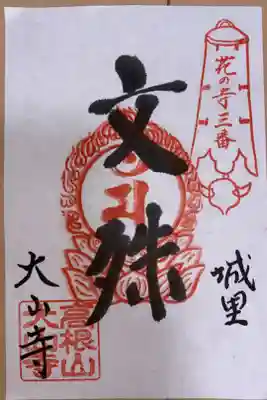 花の寺三番
文殊
城里
大山寺
高根山
大山寺